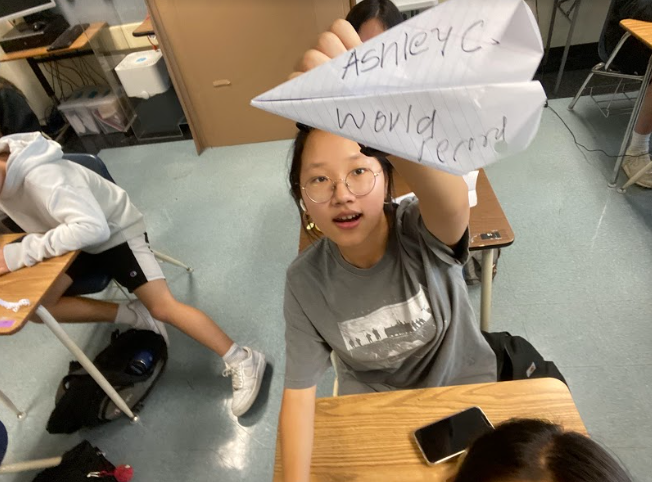 Ashley C.
World
record